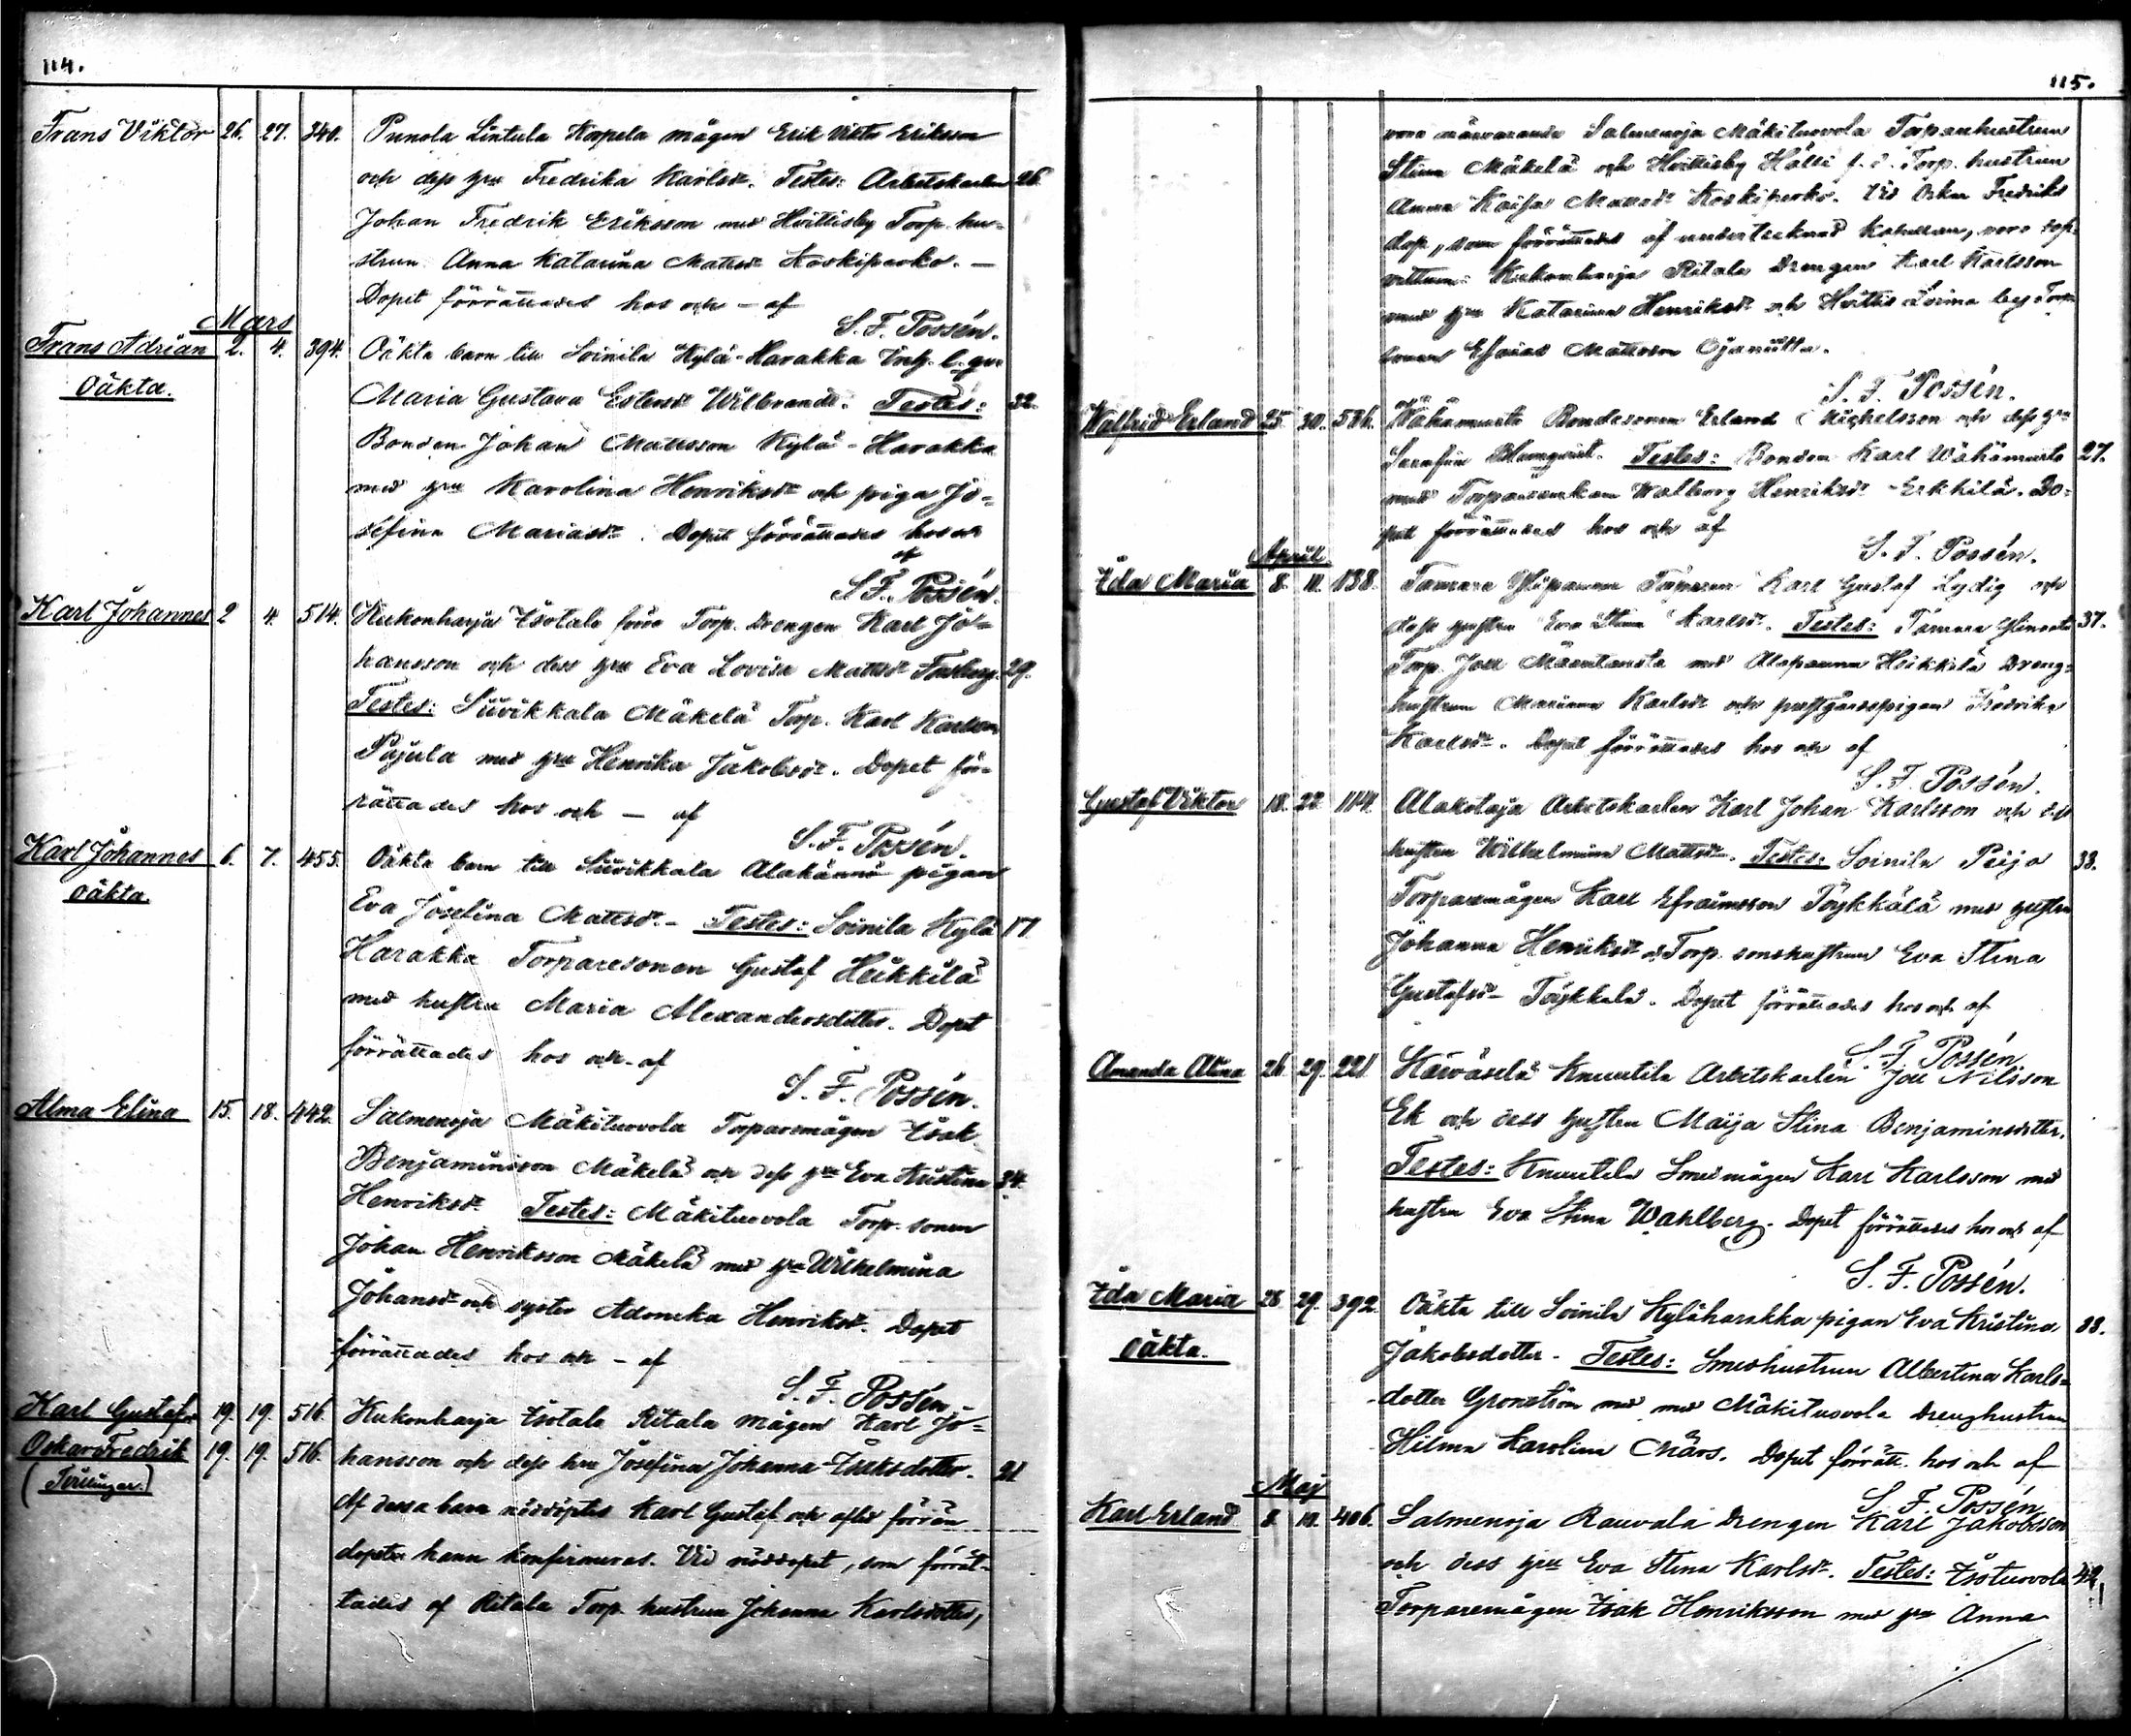 114.
Frans Viktor 26. 27. 340. Punola Lintula Korpela mågen Erik Viktor Eriksson
och dess hru Fredrika Karlsdr. Testes: Arbetskarlen 26.
Johan Fredrik Eriksson med Hvittisby Torp. hu-
strun Anna Katarina Mattsdr Koskiparko. —
Dopet förrättades hos och — af
S. F. Possén.
Mars
Frans Adrian 2. 4. 394. Oäkta barn till Soinila Kylä-Harakka Inh.
Oäkta.
Maria Gustava Wilbrandt. Testes: 32.
Bonden Johan Mattsson Kylä-Harakka
med hru Karolina Henriksdr och piga Jo-
sefina Mariasdr. Dopet förrättades hos och
af
S. F. Possén.
Karl Johannes 2 4. 514. Kukonharja Isotalo förra Torp. Drengen Karl Jo-
hansson och dess hru Eva Lovisa Mattsdr Forsberg. 29.
Testes: Suvikkala Mäkelä Torp. Karl Karlsson
Pajula med hru Henrika Jakobsdr. Dopet för-
rättades hos och — af
S. F. Possén.
Karl Johannes 6. 7. 455. Oäkta barn till Suvikkala Alahännö pigan
oäkta.
Eva Josefina Mattsdr. - Testes: Soinila Kylä 17.
Harakka Torparesonen Gustaf Heikkilä
med hustru Maria Alexandersdotter. Dopet
förrättades hos och - af
S. F. Possén.
Alma Elina 15. 18. 442. Salmenoja Mäkituovola Torparemågen Isak
Benjaminsson Mäkelä och dess hru Eva Kristina 34.
Henriksdr Testes: Mäkituovola Torp. sonen
Johan Henriksson Mäkelä med hru Wilhelmina
Johansdr och syster Adamika Henriksdr. Dopet
förrättades hos och - af
S. F. Possén.
Karl Gustaf o 19. 19. 516. Kukonharja Isotalo Ritala mågen Karl Jo-
Oskar Fredrik 19. 19. 516. hansson och dess hru Josefina Johanna Isaksdotter. 21
(Tvillingar.)
Af dessa barn nöddöptes Karl Gustaf och afled förrän
dopet kunn konfirmeras. Vid nöddopet, som förrät-
tades af Ritala Torp. hustrun Johanna Karlsdotter,
115.
voro närvarande Salmenoja Mäkituovola Torparhustrun
Stina Mäkelä och Hvittisby Hölli f. d. Torp. hustrun
Anna Kaisa Mattsdr Koskiparko. Vid Oskar Fredriks
dop, som förrättades af undertecknad Kaplan, voro dop-
vittnen: Kukonharja Ritala Drengen Karl Karlsson
med hru Katarina Henriksdr och Hvittis Loima by Torp-
Esaias Mattsson Ojanutta.
S. F. Possén.
Walfrid Erland 25. 30. 586. Wähämurto Bondesonen Erland Mickelsson och dess hru
Serafina Blomqvist. Testes: Bonden Karl Wähämurto 27.
med Torpareenkan Walborg Henriksdr Erkkilä. Do-
pet förrättades hos och af
S. F. Possén.
April.
Ida Maria 8. 11. 138. Tamare Ylipaavo Torparen Karl Gustaf Lydig och
dess hustru Eva Stina Karlsdr. Testes: Tamare 37.
Torp. Joel med Alapaavo Heikkilä Dreng-
hustrun Marianna Karlsdr och prestgårdspigan Fredrika
Karlsdr. Dopet förrättades hos och af
S. F. Possén.
Gustaf Viktor 18. 22 114. Alakotoja Arbetskarlen Karl Johan Karlsson och dess
hustru Wilhelmina Mattsdr. Testes: Soinila Peijo 33.
Torparemågen Karl Efraimsson Töykkälä med hustru
Johanna Henriksdr o. Torp. sonshustrun Eva Stina
Gustafsdr Töykkälä. Dopet förrättades hos och af
S. F. Possén
Amanda Alina 26. 29. 221 Karväselä Knuutila Arbetskarlen Joel Nilsson
Ek och dess hustru Maija Stina Benjaminsdotter.
Testes: Knuutila Smedmågen Karl Karlsson med
hustru Eva Stina Wahlberg. Dopet förrättades hos och af
S. F. Possén.
Ida Maria 28 29. 392. Oäkta till Soinila Kyläharakka pigan Eva Kristina 33.
Oäkta.
Jakobsdotter. Testes: Smedhustrun Albertina Karls-
dotter Grönström med med Mäkituovola Drenghustrun
Hilma Karolina Mårs. Dopet förrätt. hos och af
S. F. Possén
Maj
Karl Erland 8. 10. 406. Salmenoja Rauvala Drengen Karl Jakobsson
och dess hru Eva Stina Karlsdr. Testes: Isotuovola 42.
Torparemågen Isak Henriksson med hru Anna